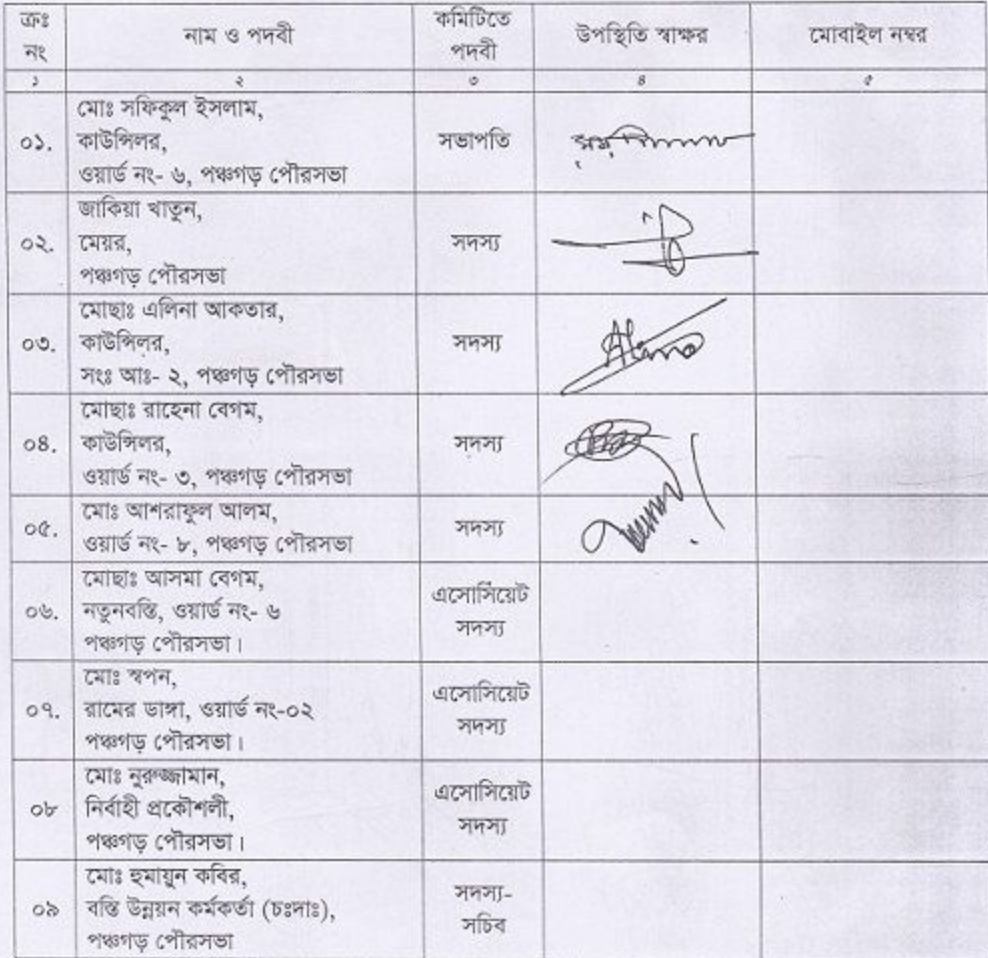 ক্রঃ নং নাম ও পদবী কমিটিতে পদবী উপস্থিতি স্বাক্ষর মোবাইল নম্বর
১ ২ ৩ ৪ ৫
০১. মোঃ সফিকুল ইসলাম,
কাউন্সিলর,
ওয়ার্ড নং- ৬, পঞ্চগড় পৌরসভা
সভাপতি
০২. জাকিয়া খাতুন,
মেয়র,
পঞ্চগড় পৌরসভা
সদস্য
০৩. মোছাঃ এলিনা আকতার,
কাউন্সিলর,
সংঃ আঃ- ২, পঞ্চগড় পৌরসভা
সদস্য
০৪. মোছাঃ রাহেনা বেগম,
কাউন্সিলর,
ওয়ার্ড নং- ৩, পঞ্চগড় পৌরসভা
সদস্য
০৫. মোঃ আশরাফুল আলম,
ওয়ার্ড নং- ৮, পঞ্চগড় পৌরসভা
সদস্য
০৬. মোছাঃ আসমা বেগম,
নতুনবস্তি, ওয়ার্ড নং- ৬
পঞ্চগড় পৌরসভা।
এসোসিয়েট
সদস্য
০৭. মোঃ স্বপন,
রামের ডাঙ্গা, ওয়ার্ড নং-০২
পঞ্চগড় পৌরসভা।
এসোসিয়েট
সদস্য
০৮ মোঃ নুরুজ্জামান,
নির্বাহী প্রকৌশলী,
পঞ্চগড় পৌরসভা।
এসোসিয়েট
সদস্য
০৯ মোঃ হুমায়ুন কবির,
বস্তি উন্নয়ন কর্মকর্তা (চঃদাঃ),
পঞ্চগড় পৌরসভা
সদস্য-
সচিব